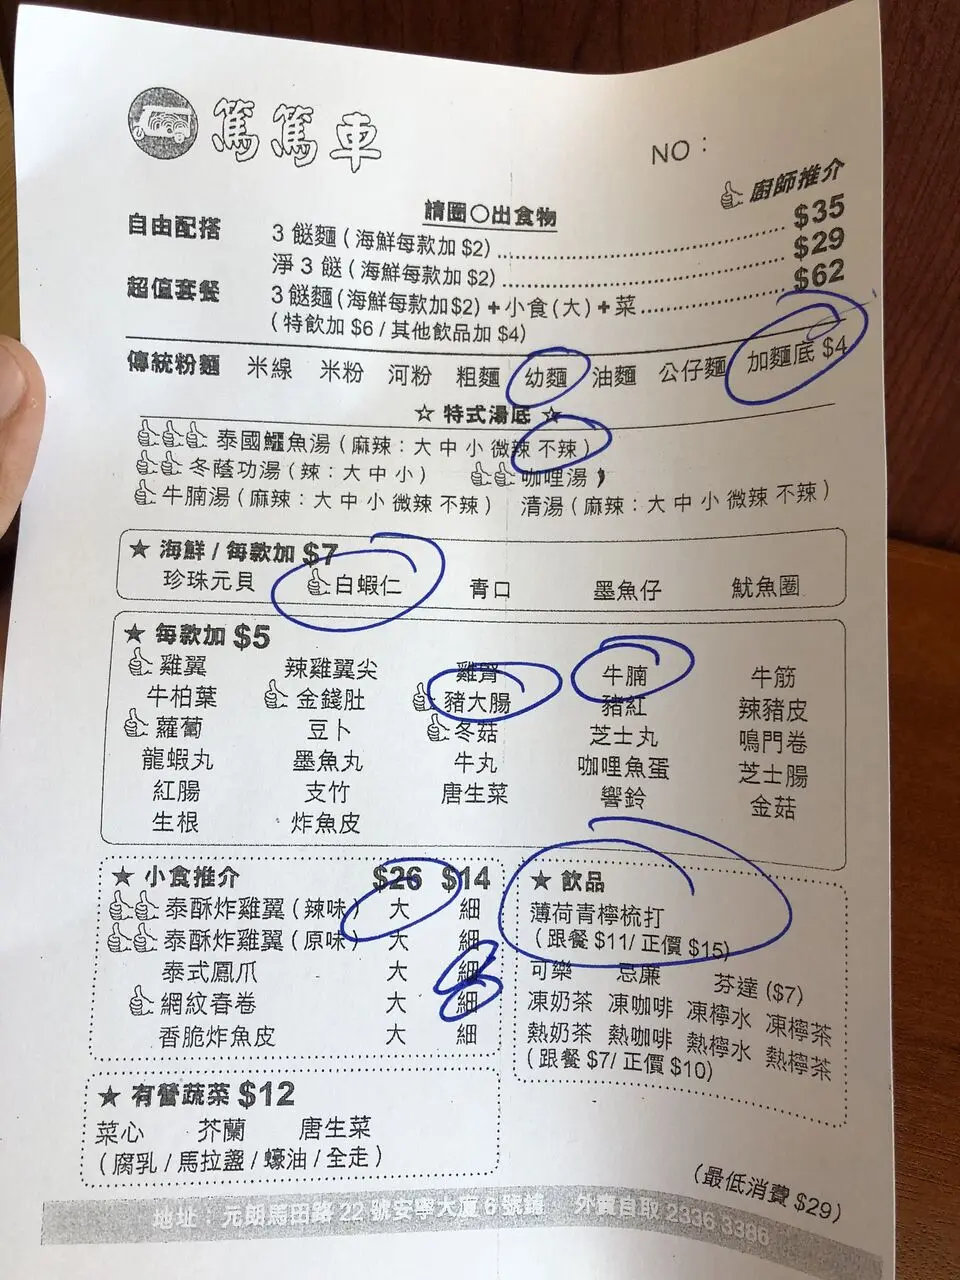 篤篤車
NO：
請圈○出食物
廚師推介
自由配搭 3 餸麵 ( 海鮮每款加 $2) $35
淨 3 餸 ( 海鮮每款加 $2) $29
超值套餐 3 餸麵(海鮮每款加$2) + 小食 (大) + 菜 $62
( 特飲加 $6 / 其他飲品加 $4)
傳統粉麵 米線 米粉 河粉 粗麵 幼麵 油麵 公仔麵 加麵底 $4
☆ 特式湯底 ☆
泰國鱷魚湯 ( 麻辣：大 中 小 微辣 不辣 )
冬蔭功湯 ( 辣：大 中 小 ) 咖哩湯
牛腩湯 ( 麻辣：大 中 小 微辣 不辣 ) 清湯 ( 麻辣：大 中 小 微辣 不辣 )
★ 海鮮 / 每款加 $7
珍珠元貝 白蝦仁 青口 墨魚仔 魷魚圈
★ 每款加 $5
雞翼 辣雞翼尖 雞腎 牛腩 牛筋
牛柏葉 金錢肚 豬大腸 豬紅 辣豬皮
蘿蔔 豆卜 冬菇 芝士丸 鳴門卷
龍蝦丸 墨魚丸 牛丸 咖哩魚蛋 芝士腸
紅腸 支竹 唐生菜 響鈴 金菇
生根 炸魚皮
★ 小食推介 $26 $14
泰酥炸雞翼 ( 辣味 ) 大 細
泰酥炸雞翼 ( 原味 ) 大 細
泰式鳳爪 大 細
網紋春卷 大 細
香脆炸魚皮 大 細
★ 飲品
薄荷青檸梳打
( 跟餐 $11/ 正價 $15)
可樂 忌廉 芬達 ($7)
凍奶茶 凍咖啡 凍檸水 凍檸茶
熱奶茶 熱咖啡 熱檸水 熱檸茶
( 跟餐 $7/ 正價 $10)
★ 有營蔬菜 $12
菜心 芥蘭 唐生菜
( 腐乳 / 馬拉盞 / 蠔油 / 全走 )
(最低消費 $29)
地址：元朗馬田路 22 號安寧大廈 6 號鋪 外賣自取 2336 3386